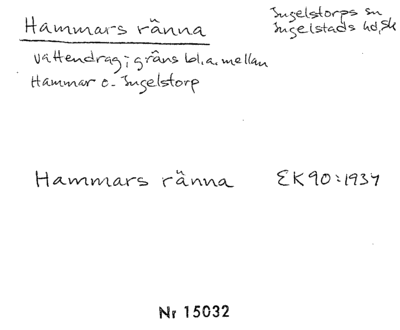 Hammars ränna
Ingelstorps sn
Ingelstads hd, Sk
vattendrag; gräns bl.a. mellan
Hammar o. Ingelstorp
Hammars ränna EK 90:1934
Nr 15032